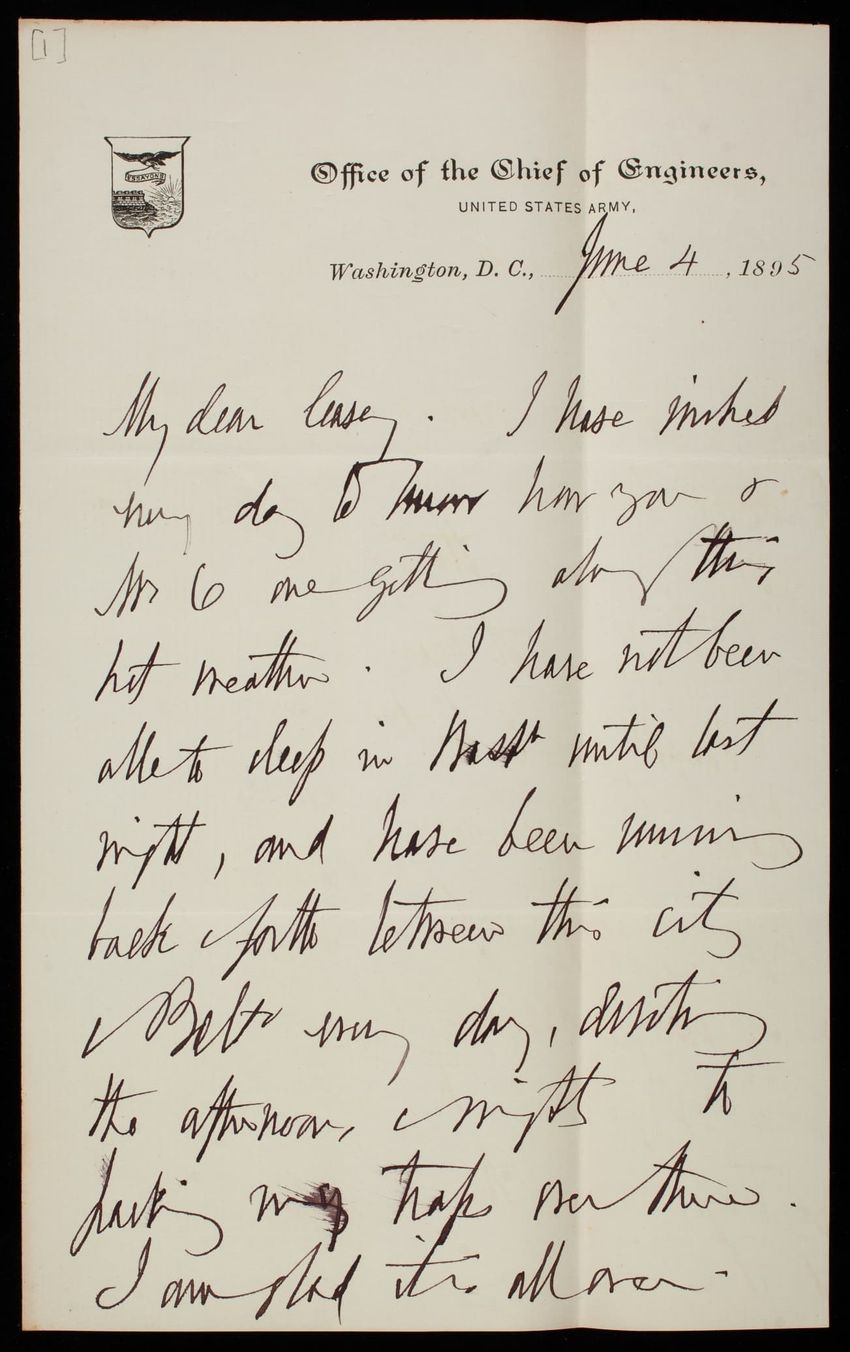 [1]
ESSAYONS
Office of the Chief of Engineers,
UNITED STATES ARMY,
Washington, D. C., June 4, 1895
My dear Casey. I have wished
every day to know how you &
Mrs C are getting along this
hot weather. I have not been
able to sleep in Washn until last
night, and have been running
back & forth between this city
& Balto every day, devoting
the afternoons & nights to
packing my traps over there.
I am glad it is all over.